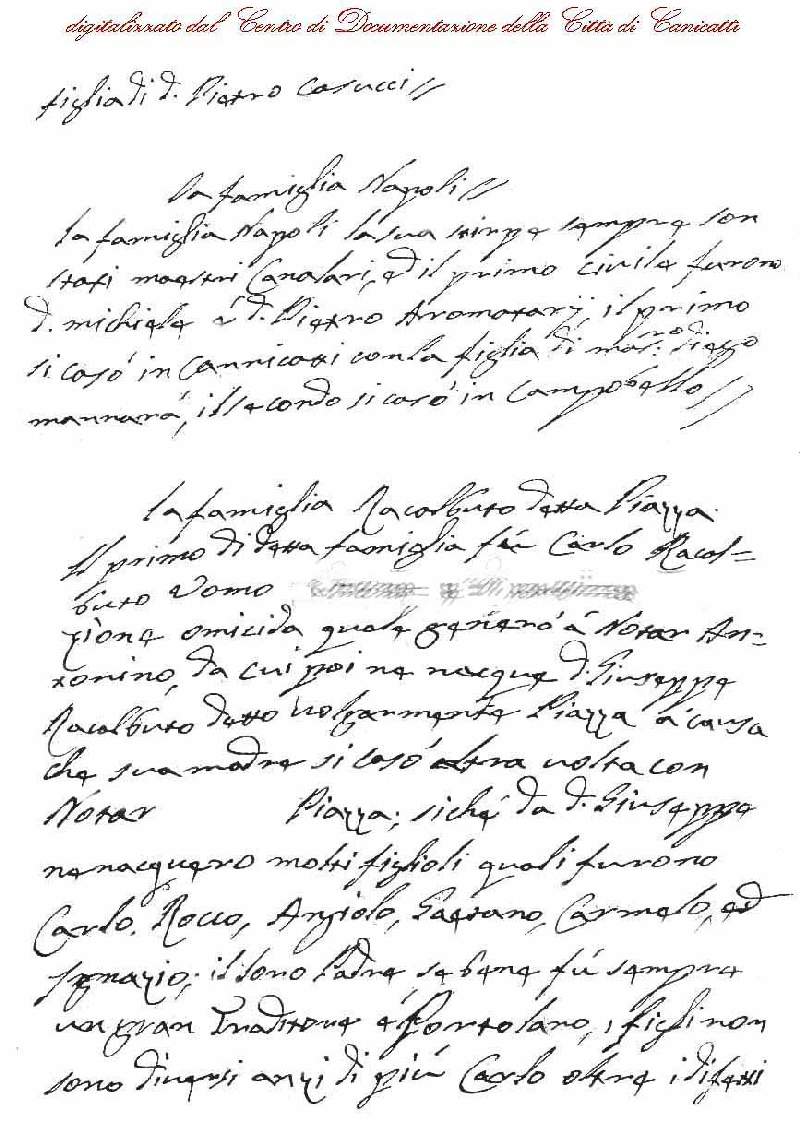 digitalizzato dal Centro di Documentazione della Città di Canicattì
figlia di d. Pietro Casucci //
La famiglia Napoli //
La famiglia Napoli la sua stirpe sempre son
stati maestri Canalari, ed il primo civile furono
d. michiele é d. Pietro Aromatarij, il primo
si casó in Cannicatti con la figlia di mas:ro diego
mannará, il secondo si casó in Campobello //
La famiglia Racalbuto detta Piazza
Il primo di detta famiglia fú Carlo Racal=
buto Uomo
zione omicida quale generó á Notar An=
tonino, da cui poi ne nacque d. Giuseppe
Racalbuto detto volgarmente Piazza á causa
che sua madre si casó altra volta con
Notar Piazza; siché da d. Giuseppe
ne nacquero molti figlioli quali furono
Carlo, Rocco, Angiolo, Gaetano, Carmelo, ed
Ignazio; il loro Padre se bene fú sempre
un gran Traditore é Portolano, i figli non
sono diversi anzi di piú Carlo oltre i difetti